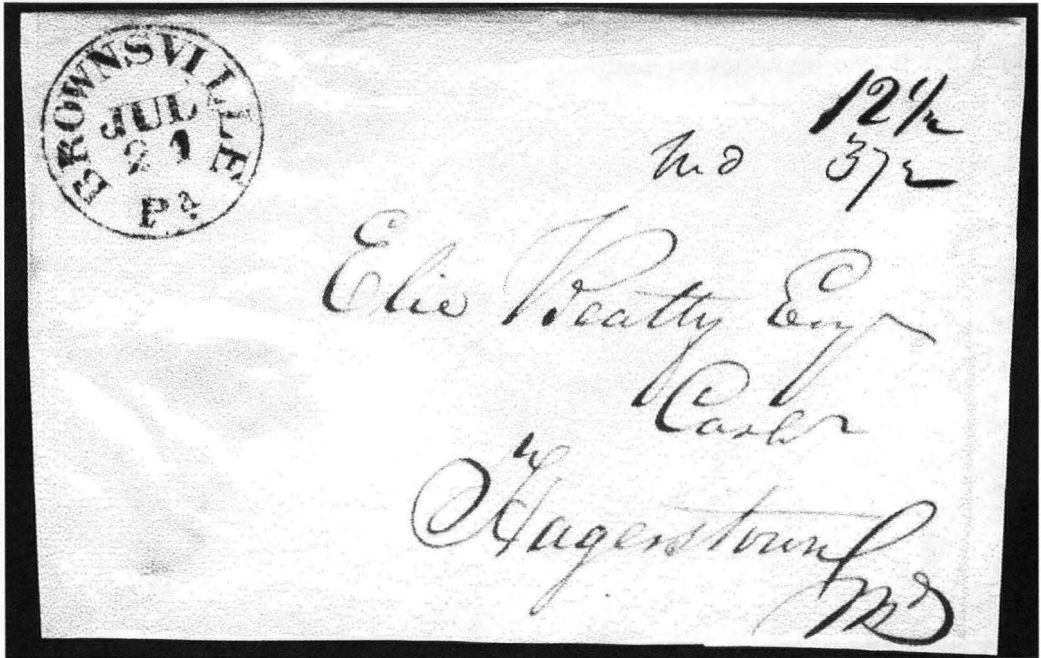 BROWNSVILLE
JUL
Pa
12 1/2
Md 37 1/2
Elie Beatty Esqr
Cashr
Hagerstown
Md